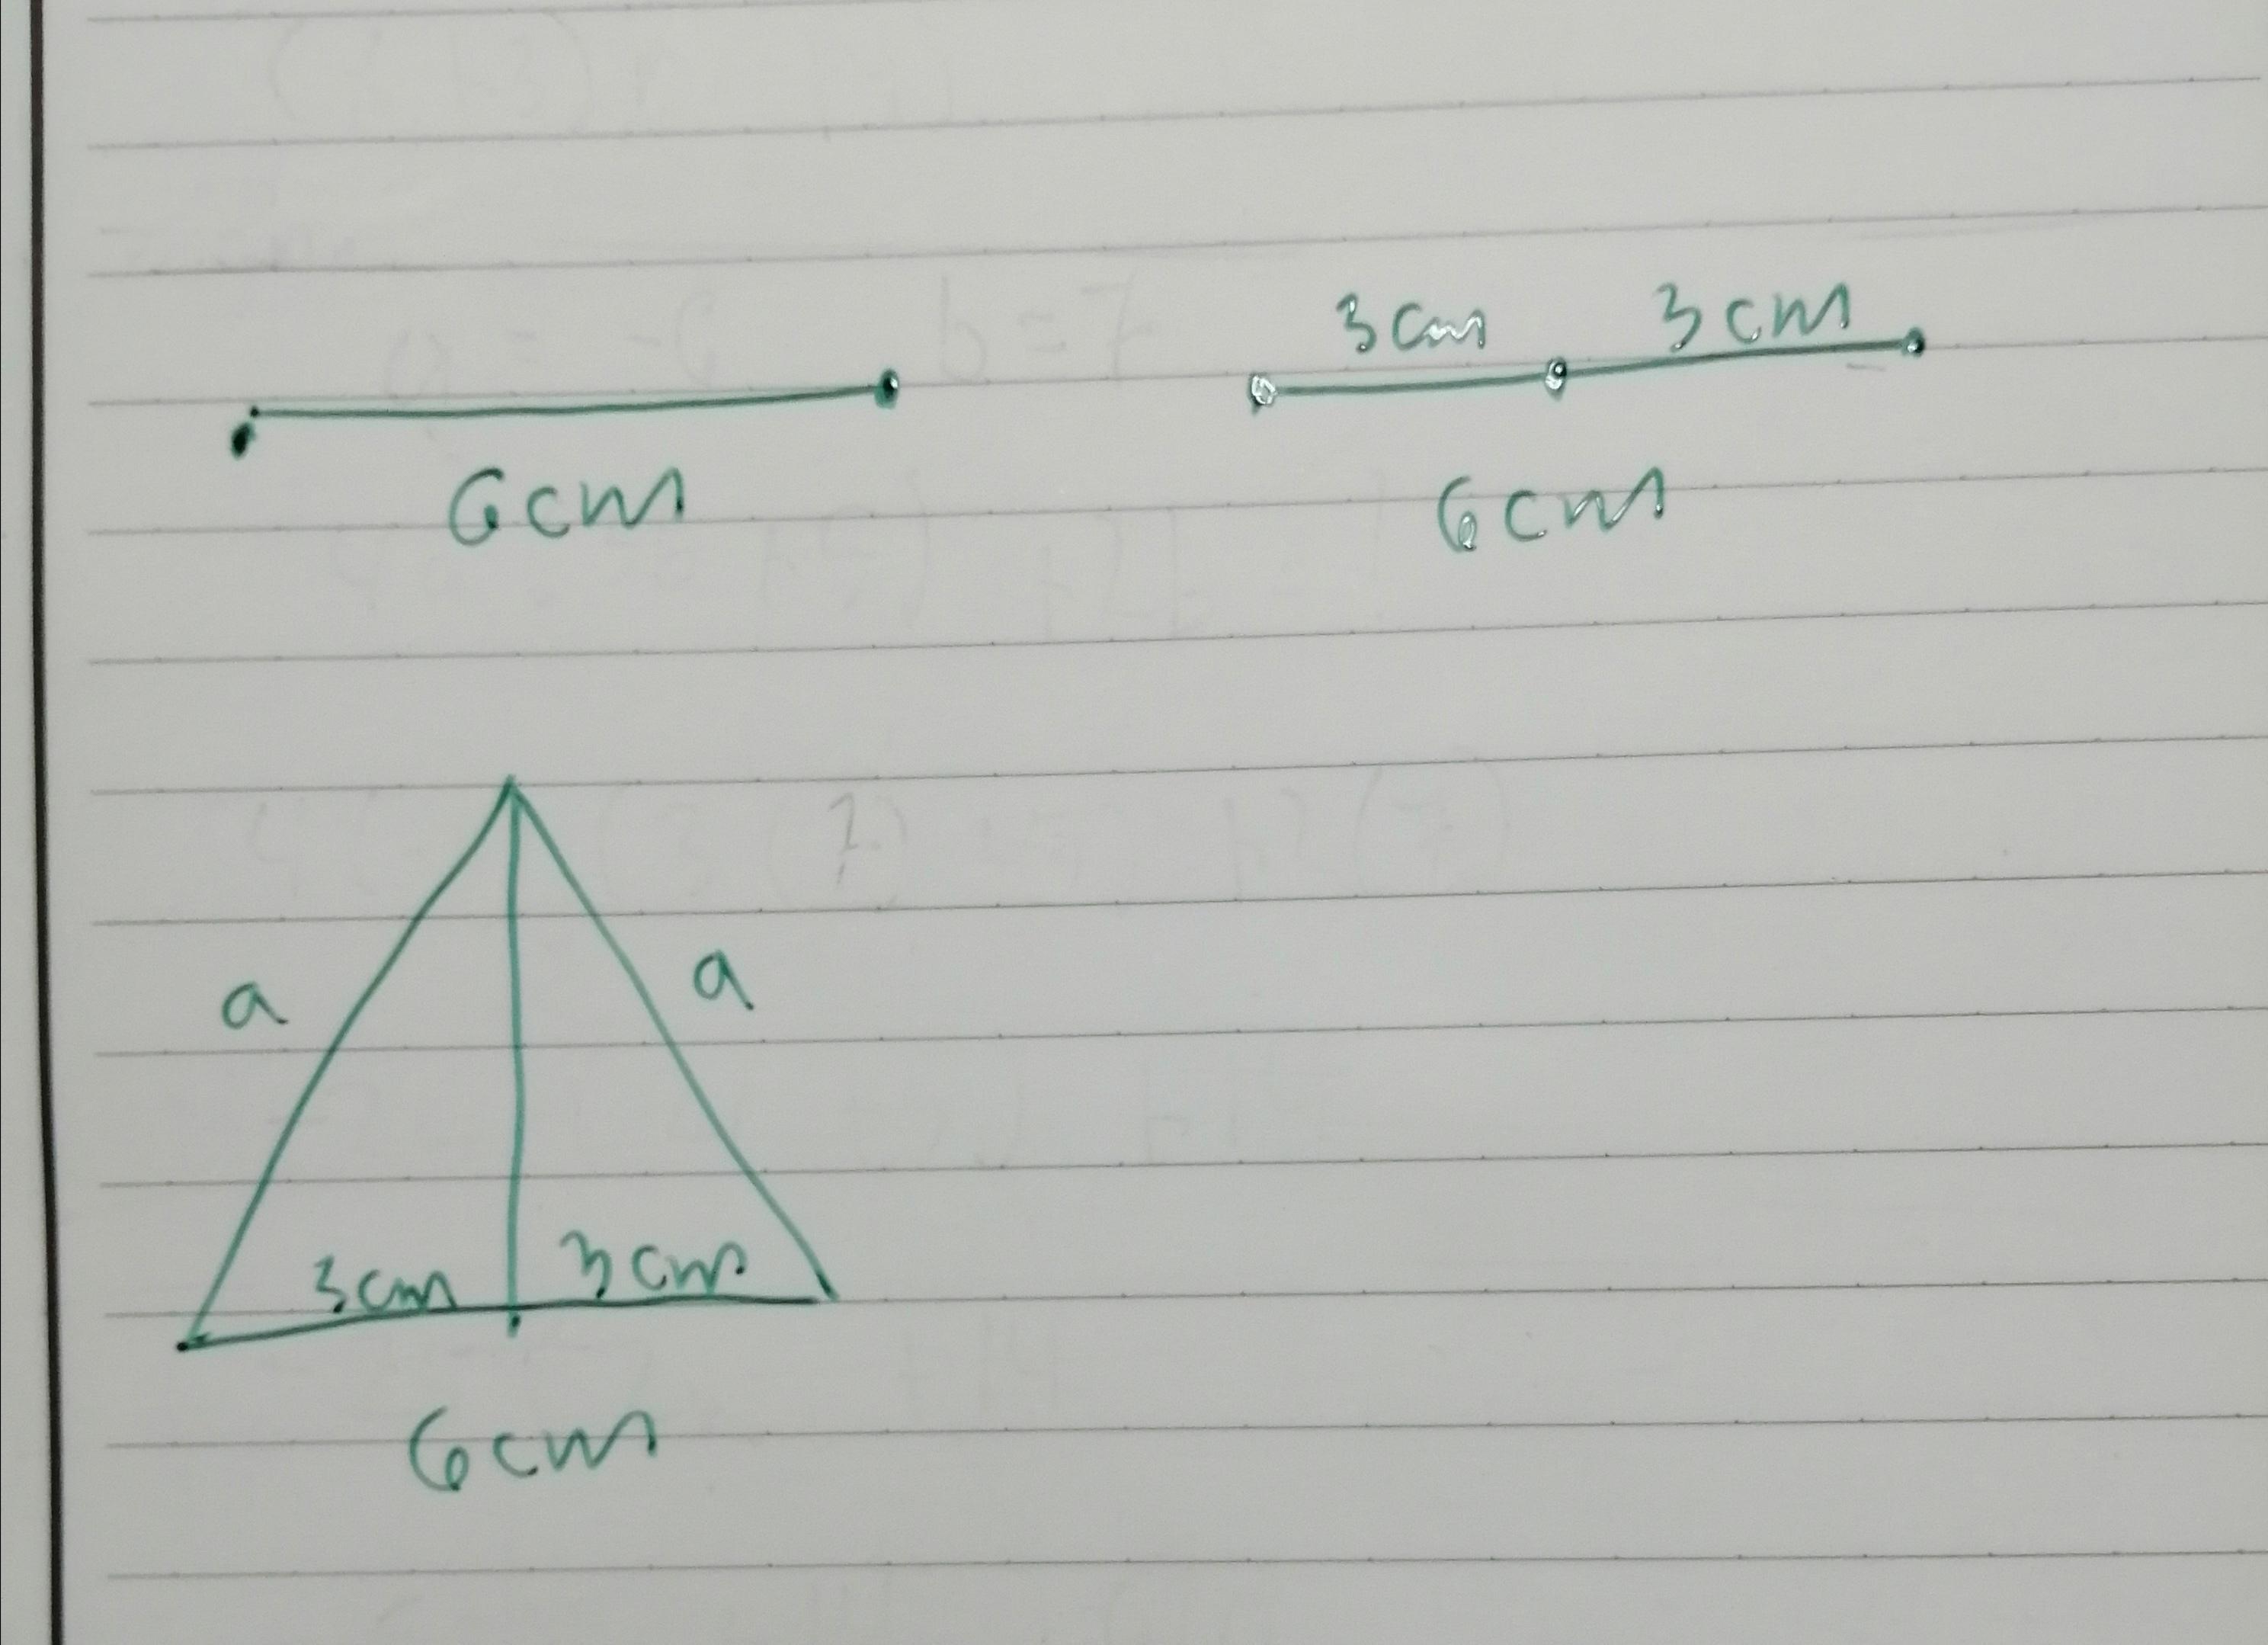 3 cm 3 cm
6 cm
6 cm
a
a
3 cm 3 cm
6 cm